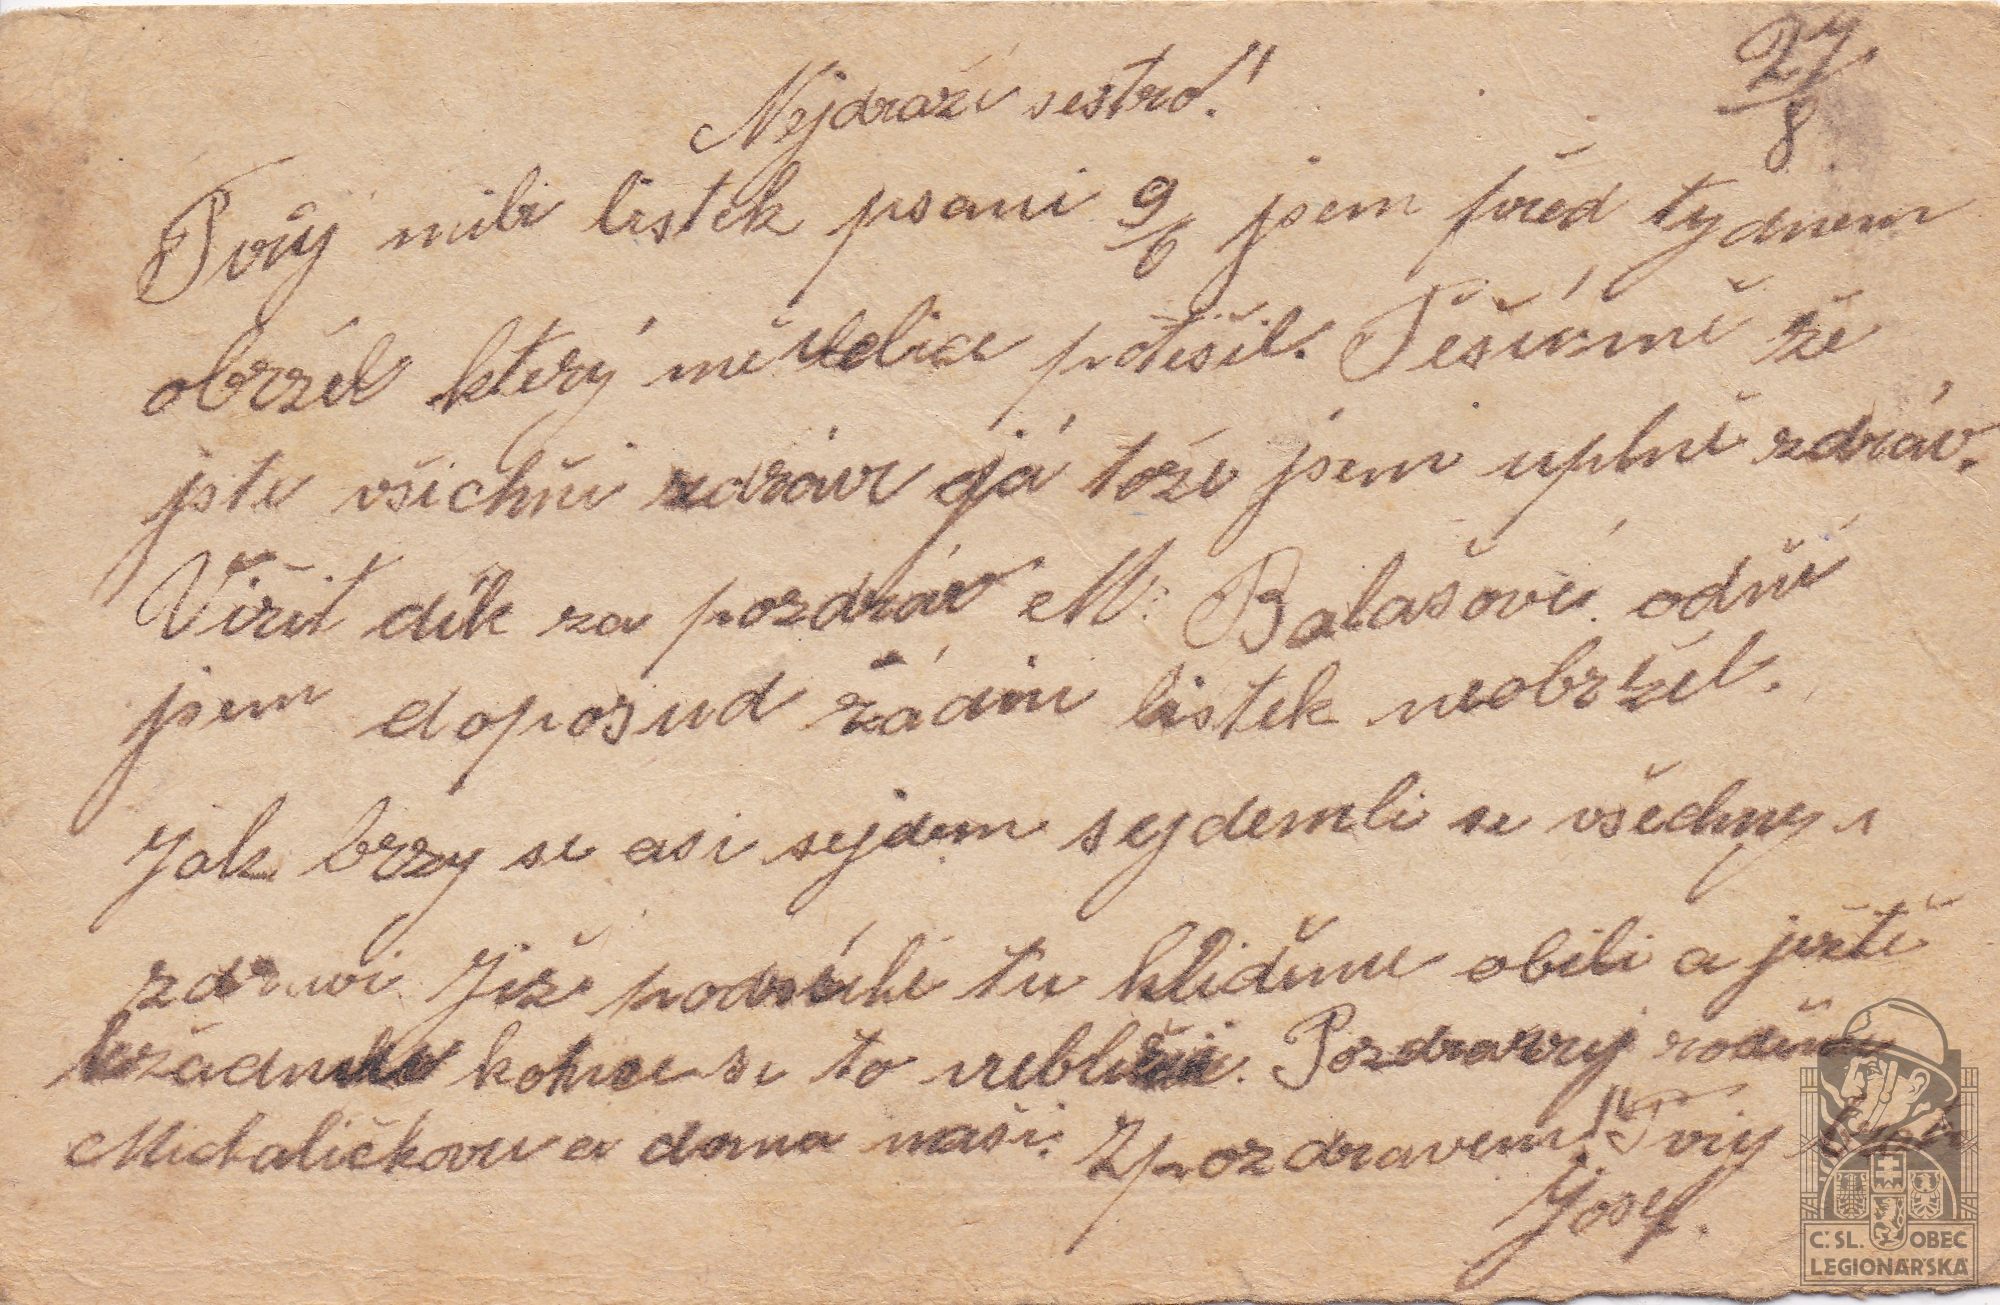 27/8
Nejdražší sestro!"
Tvůj mili listek psani 9/6 jsem před tydnem
obržel který mě velice potěšil. Těšímě že
jste všichni zdrávi a já tože jsem uplně zdráv.
Viřit dík za pozdráv M. Balašové. odní
jsem doposud žádni listek neobržel.
Jak brzy se asi sejdem sejdemli se všechny
zdravi Již podruhé tu klidíme obili a ještě
kožádnemu konce se to neblíži. Pozdravuj rodinu
Michaličkovu a doma naši. Zpozdravem! "Tvůj
Josef.
Č. SL. OBEC
LEGIONÁŘSKÁ